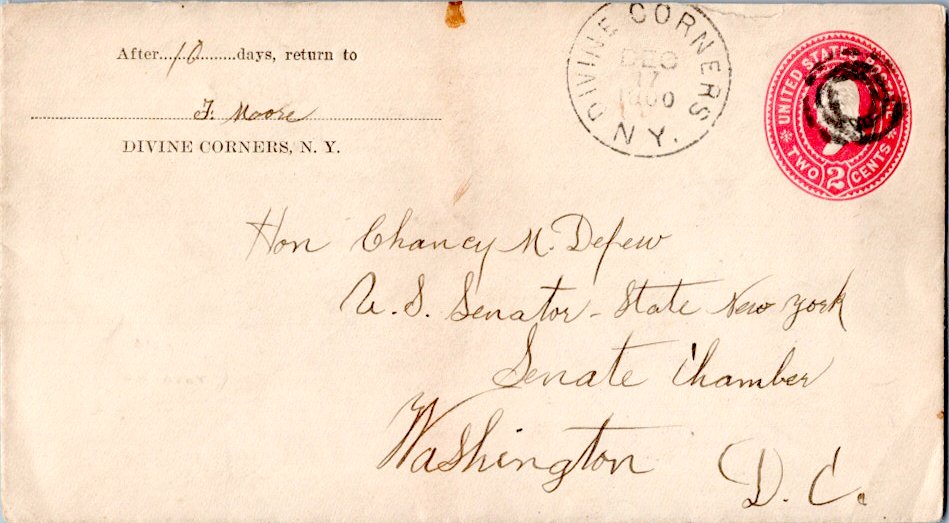 After....10........days, return to
F. Moore
DIVINE CORNERS, N. Y.
DIVINE CORNERS
DEC
17
1900
N.Y.
UNITED STATES
TWO 2 CENTS
Hon Chancy M. Depew
U. S. Senator - State New York
Senate Chamber
Washington
D. C.